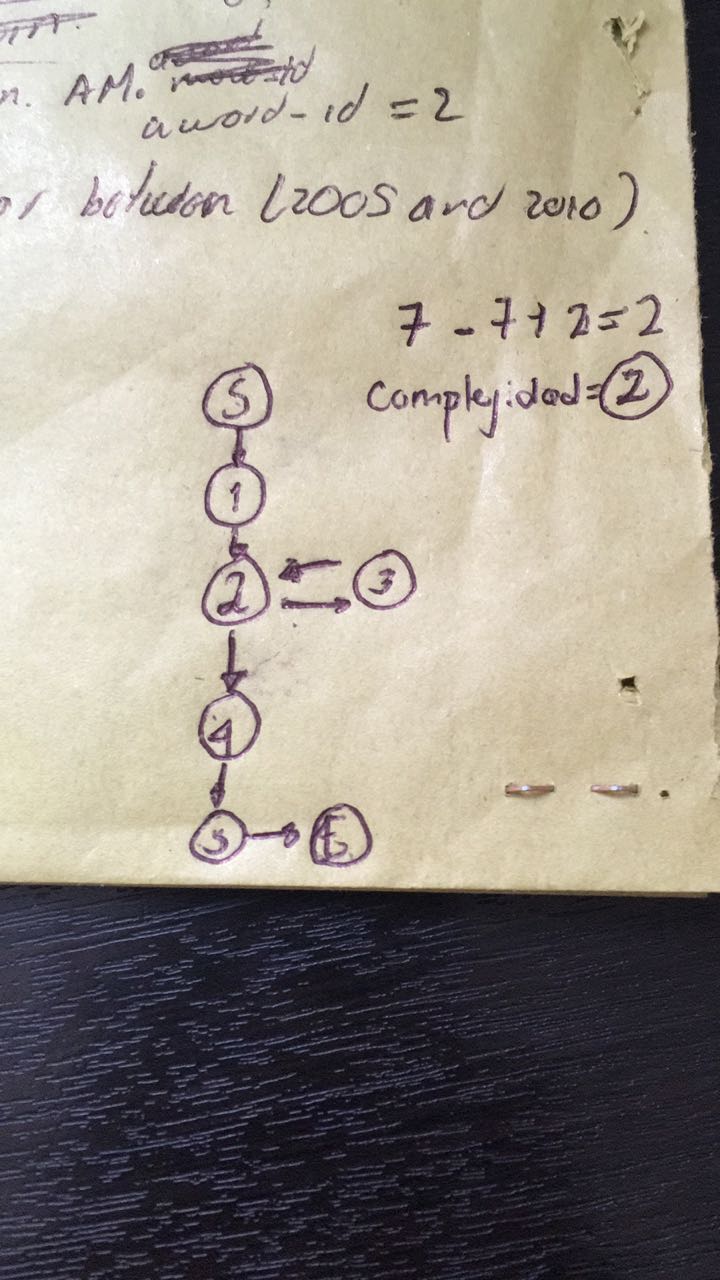 n. AM.
aword-id = 2
or between (2005 and 2010)
7 - 7 + 2 = 2
Complejidad = 2
S
1
2 3
4
5 E